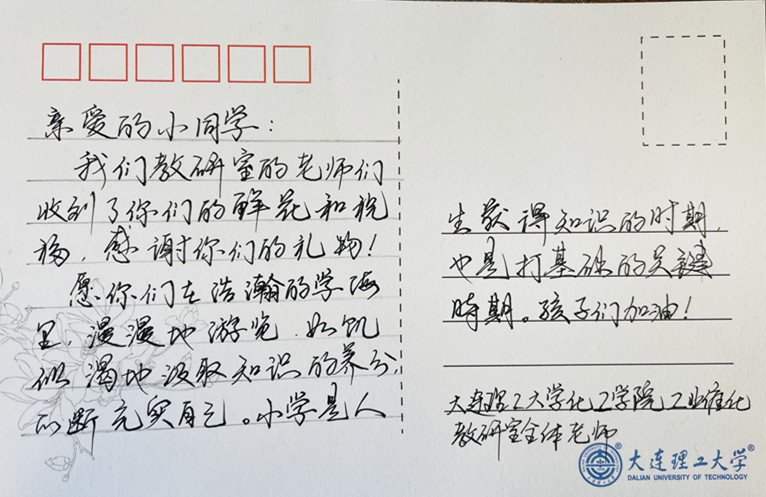 亲爱的小同学：
我们教研室的老师们
收到了你们的鲜花和祝
福，感谢你们的礼物！
愿你们在浩瀚的学海
里，漫漫地游览，如饥
似渴地汲取知识的养分，
以断充实自己。小学是人
生获得知识的时期，
也是打基础的关键
时期。孩子们加油！
大连理工大学化工学院工业催化
教研室全体老师
大连理工大学®
DALIAN UNIVERSITY OF TECHNOLOGY